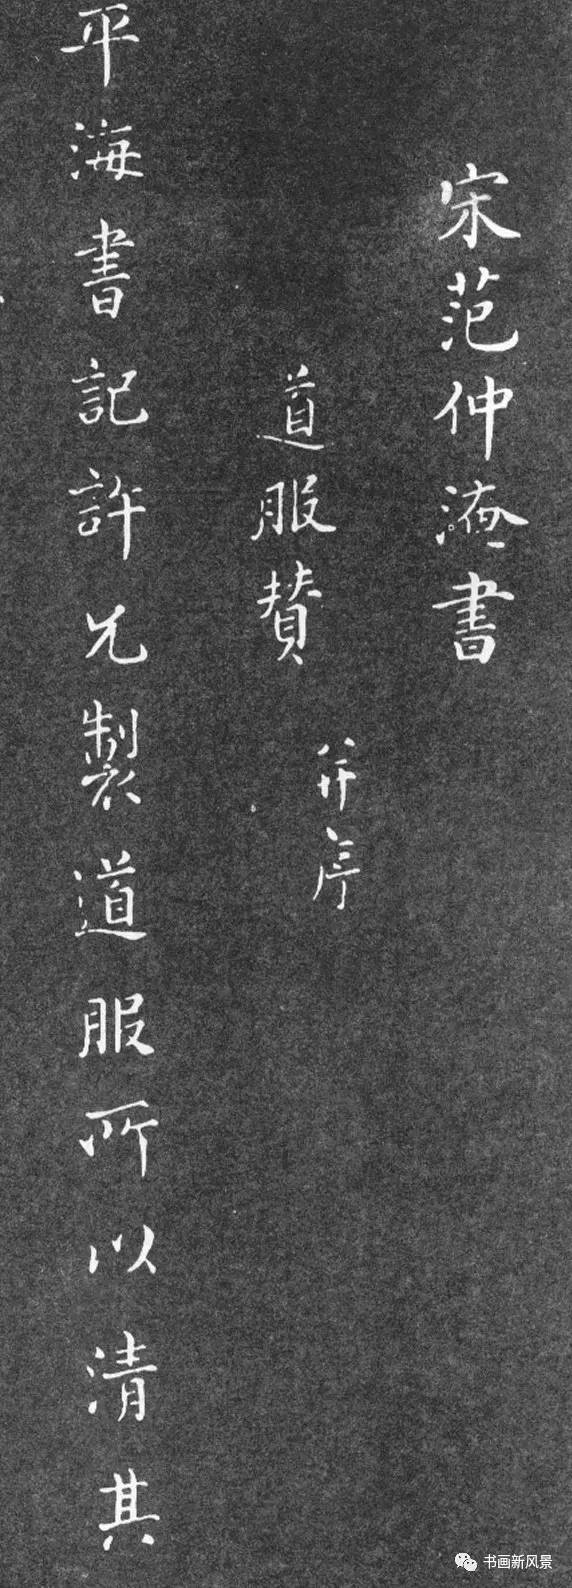 宋范仲淹書
道服賛 并序
平海書記許兄製道服所以清其
书画新风景